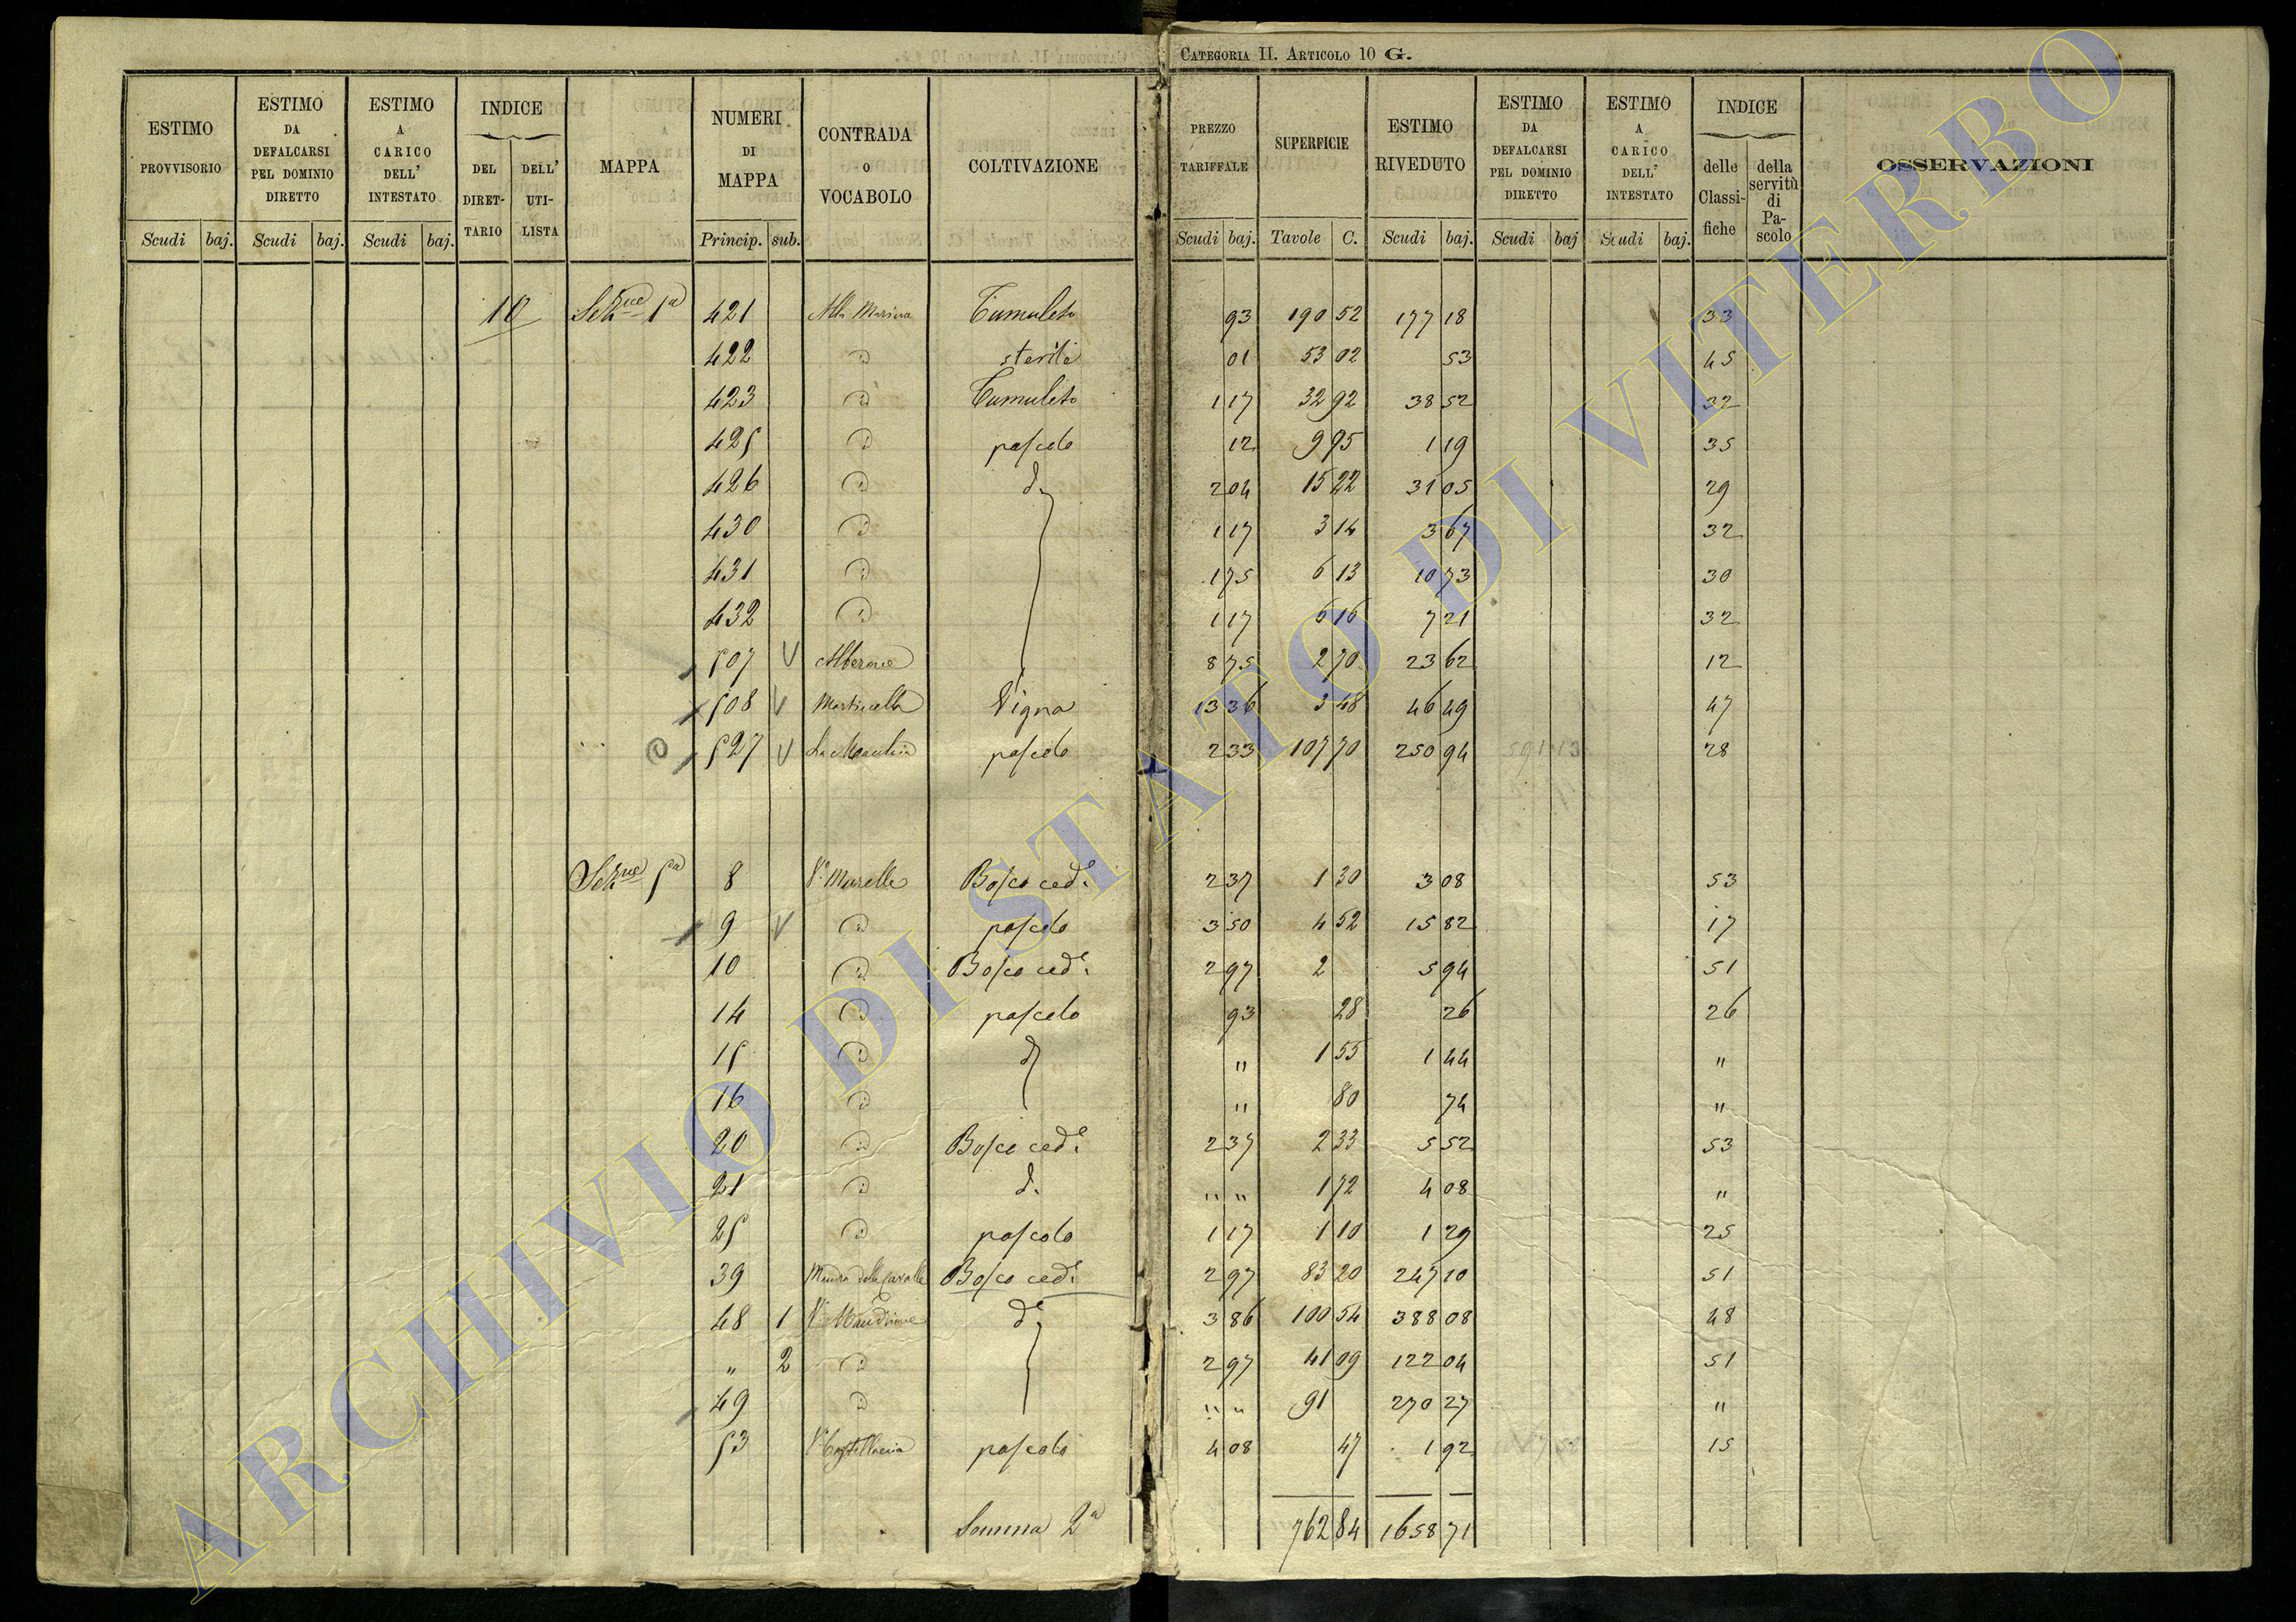 CATEGORIA II. ARTICOLO 10 G.
ESTIMO PROVVISORIO | ESTIMO DA DEFALCARSI PEL DOMINIO DIRETTO | ESTIMO A CARICO DELL' INTESTATO | INDICE | MAPPA | NUMERI DI MAPPA | CONTRADA O VOCABOLO | COLTIVAZIONE | PREZZO TARIFFALE | SUPERFICIE | ESTIMO RIVEDUTO | ESTIMO DA DEFALCARSI PEL DOMINIO DIRETTO | ESTIMO A CARICO DELL' INTESTATO | INDICE | OSSERVAZIONI
DEL DIRET-TARIO | DELL' UTI-LISTA | delle Classi-fiche | della servitù di Pa-scolo
Scudi | baj. | Scudi | baj. | Scudi | baj. | Princip. | sub. | Scudi | baj. | Tavole | C. | Scudi | baj. | Scudi | baj | Scudi | baj.
10 Sezne 1a 421 Alla Marina Tumuleto 93 190 52 177 18 33
422 " sterile 01 53 02 53 45
423 " Tumuleto 1 17 32 92 38 52 32
425 " pascolo 12 9 95 1 19 35
426 " d. 2 04 15 22 31 05 29
430 " 1 17 3 14 3 67 32
431 " 1 75 6 13 10 73 30
432 " 1 17 6 16 7 21 32
507 V Alberone 8 75 2 70 23 62 12
508 V Marticella Vigna 13 36 3 48 46 49 47
527 V pascolo 2 33 107 70 250 94 28
Sezne 5a 8 Murelle Bosco ced. 2 37 1 30 3 08 53
9 V " pascolo 3 50 4 52 15 82 17
10 " Bosco ced. 2 97 2 5 94 51
14 " pascolo 93 28 26 26
15 " d " 1 55 1 44 "
16 " " 80 74 "
20 " Bosco ced. 2 37 2 33 5 52 53
21 " d. " " 1 72 4 08 "
25 " pascolo 1 17 1 10 1 29 25
39 Mandra delle Cavalle Bosco ced. 2 97 83 20 247 10 51
48 1 Mandrione d. 3 86 100 54 388 08 48
" 2 " 2 97 41 09 122 04 51
49 " " " 91 270 27 "
53 pascolo 4 08 47 1 92 15
Somma 2a 762 84 1658 71
ARCHIVIO DI STATO DI VITERBO